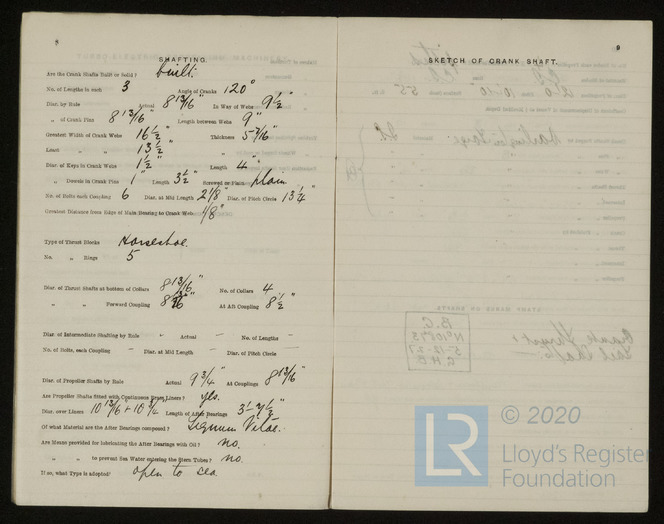 8
SHAFTING.
Are the Crank Shafts Built or Solid? built.
No. of Lengths in each 3 Angle of Cranks 120°
Diar. by Rule Actual 8 13/16" In Way of Webs 9 1/2"
„ of Crank Pins 8 13/16" Length between Webs 9"
Greatest Width of Crank Webs 16 1/2" Thickness 5-7/16"
Least „ „ 13 1/2" „
Diar. of Keys in Crank Webs 1 1/2" Length 4"
„ Dowels in Crank Pins 1" Length 3 1/2" Screwed or Plain plain
No. of Bolts each Coupling 6 Diar. at Mid Length 2 1/8" Diar. of Pitch Circle 13 1/4"
Greatest Distance from Edge of Main Bearing to Crank Web 1/8"
Type of Thrust Blocks Horseshoe.
No. „ Rings 5
Diar. of Thrust Shafts at bottom of Collars 8 13/16" No. of Collars 4
„ „ Forward Coupling 8 At Aft Coupling 8 1/2"
Diar. of Intermediate Shafting by Rule - Actual - No. of Lengths -
No. of Bolts, each Coupling - Diar. at Mid Length - Diar. of Pitch Circle -
Diar. of Propeller Shafts by Rule Actual 9 3/4" At Couplings 8 13/16"
Are Propeller Shafts fitted with Continuous Brass Liners? yes.
Diar. over Liners 10 13/16" + 10 3/4" Length of After Bearings 3'-
Of what Material are the After Bearings composed? Lignum Vitae.
Are Means provided for lubricating the After Bearings with Oil? no.
„ „ to prevent Sea Water entering the Stern Tubes? no.
If so, what Type is adopted? open to sea
9
SKETCH OF CRANK SHAFT.
© 2020
LR
Lloyd's Register
Foundation